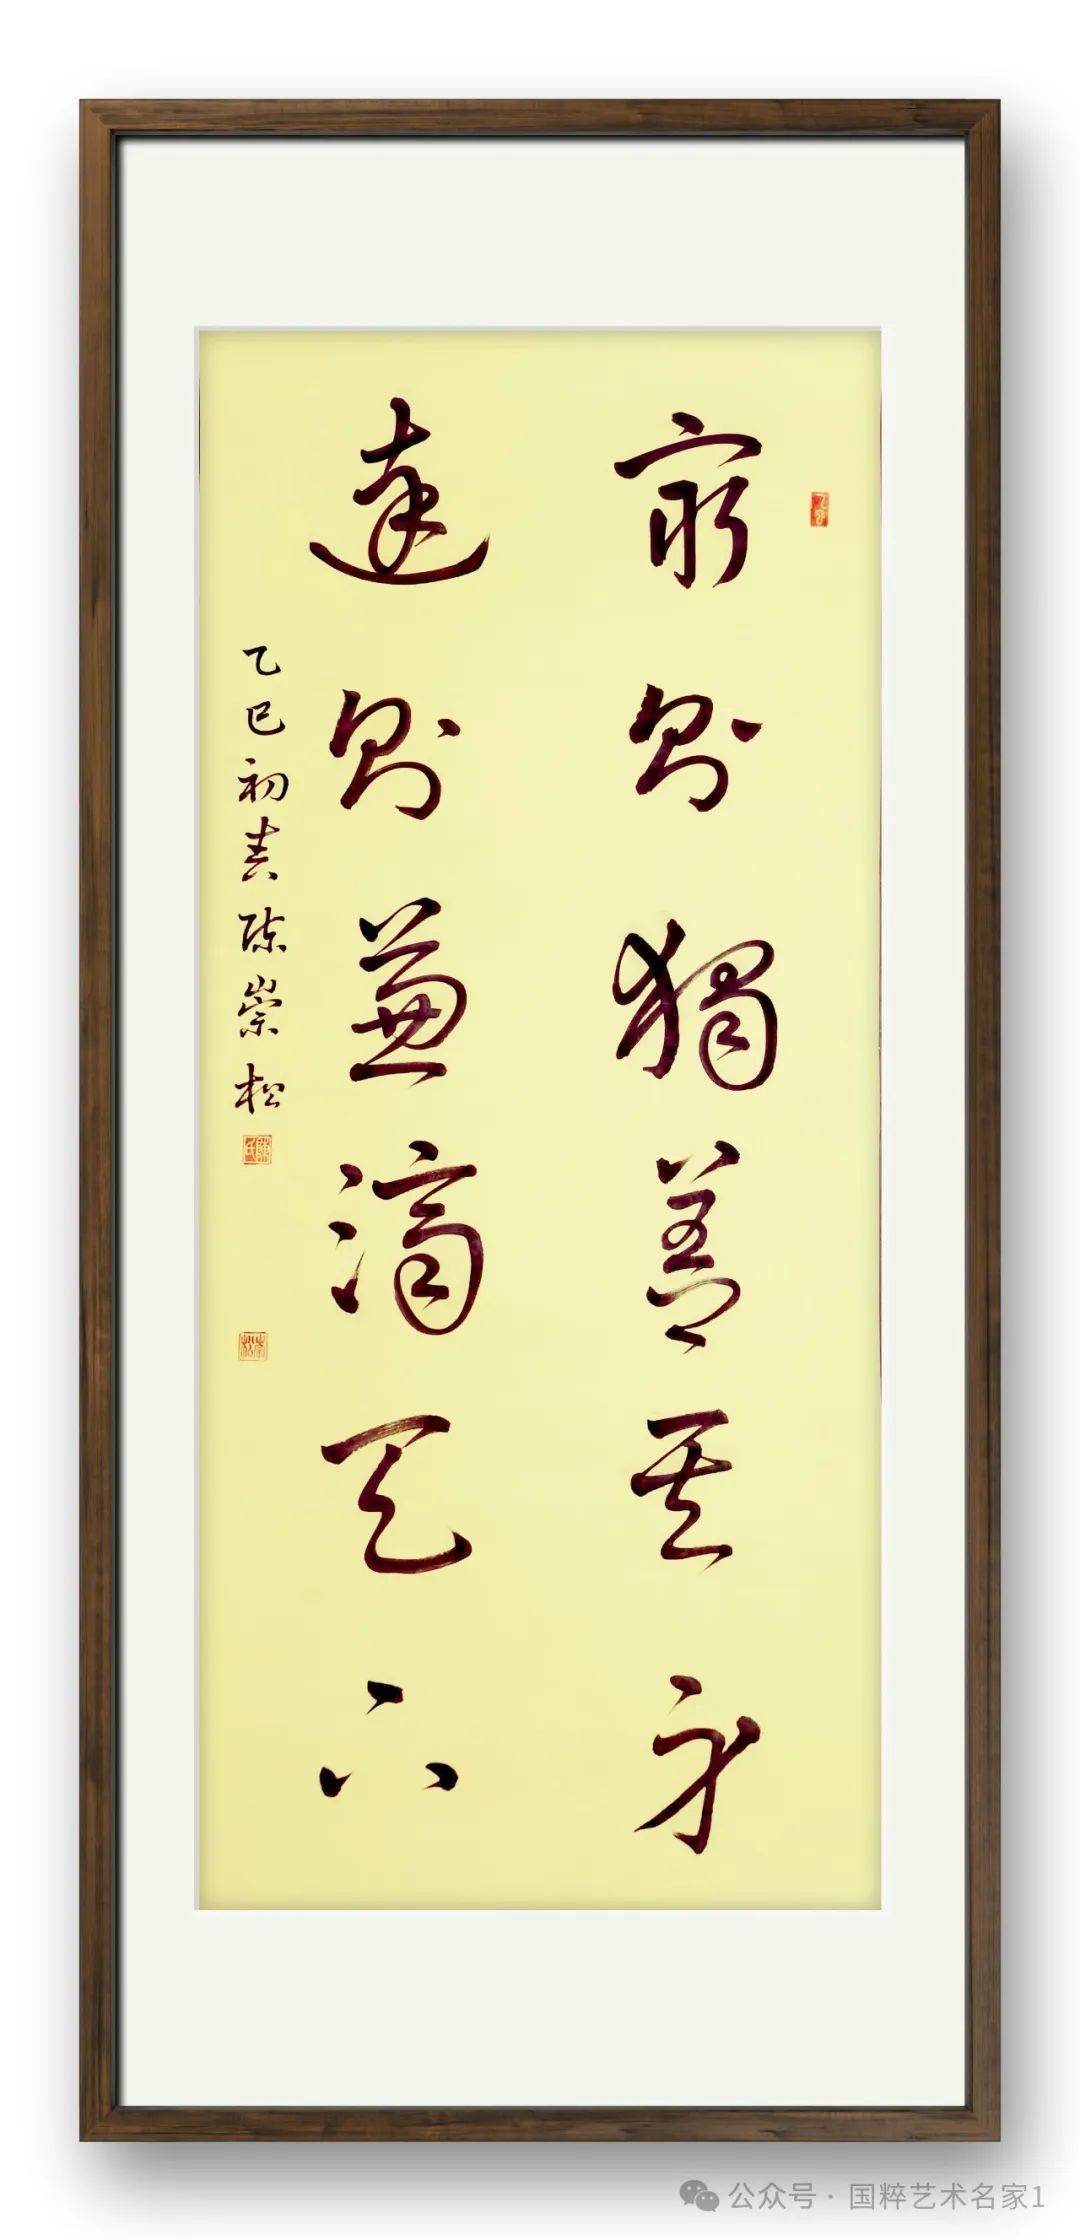 穷则独善其身
达则兼济天下
乙巳初春陈崇松
公众号 · 国粹艺术名家1